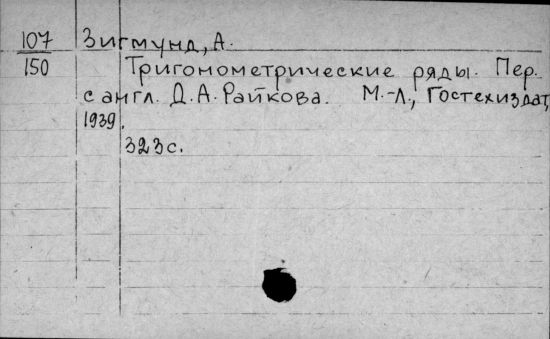 107 Зигмунд, А.
150 Тригонометрические ряды. Пер.
с англ. Д.А. Райкова. М.-Л., Гостехиздат,
1939.
323с.